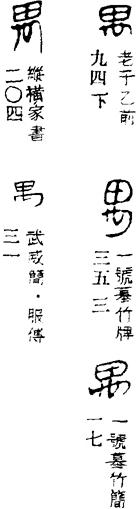 禺
老子乙前
九四下
禺
一號墓竹牌
三五三
禺
一號墓竹簡
一七
禺
縱橫家書
二〇四
禺
武威簡·服傳
三一